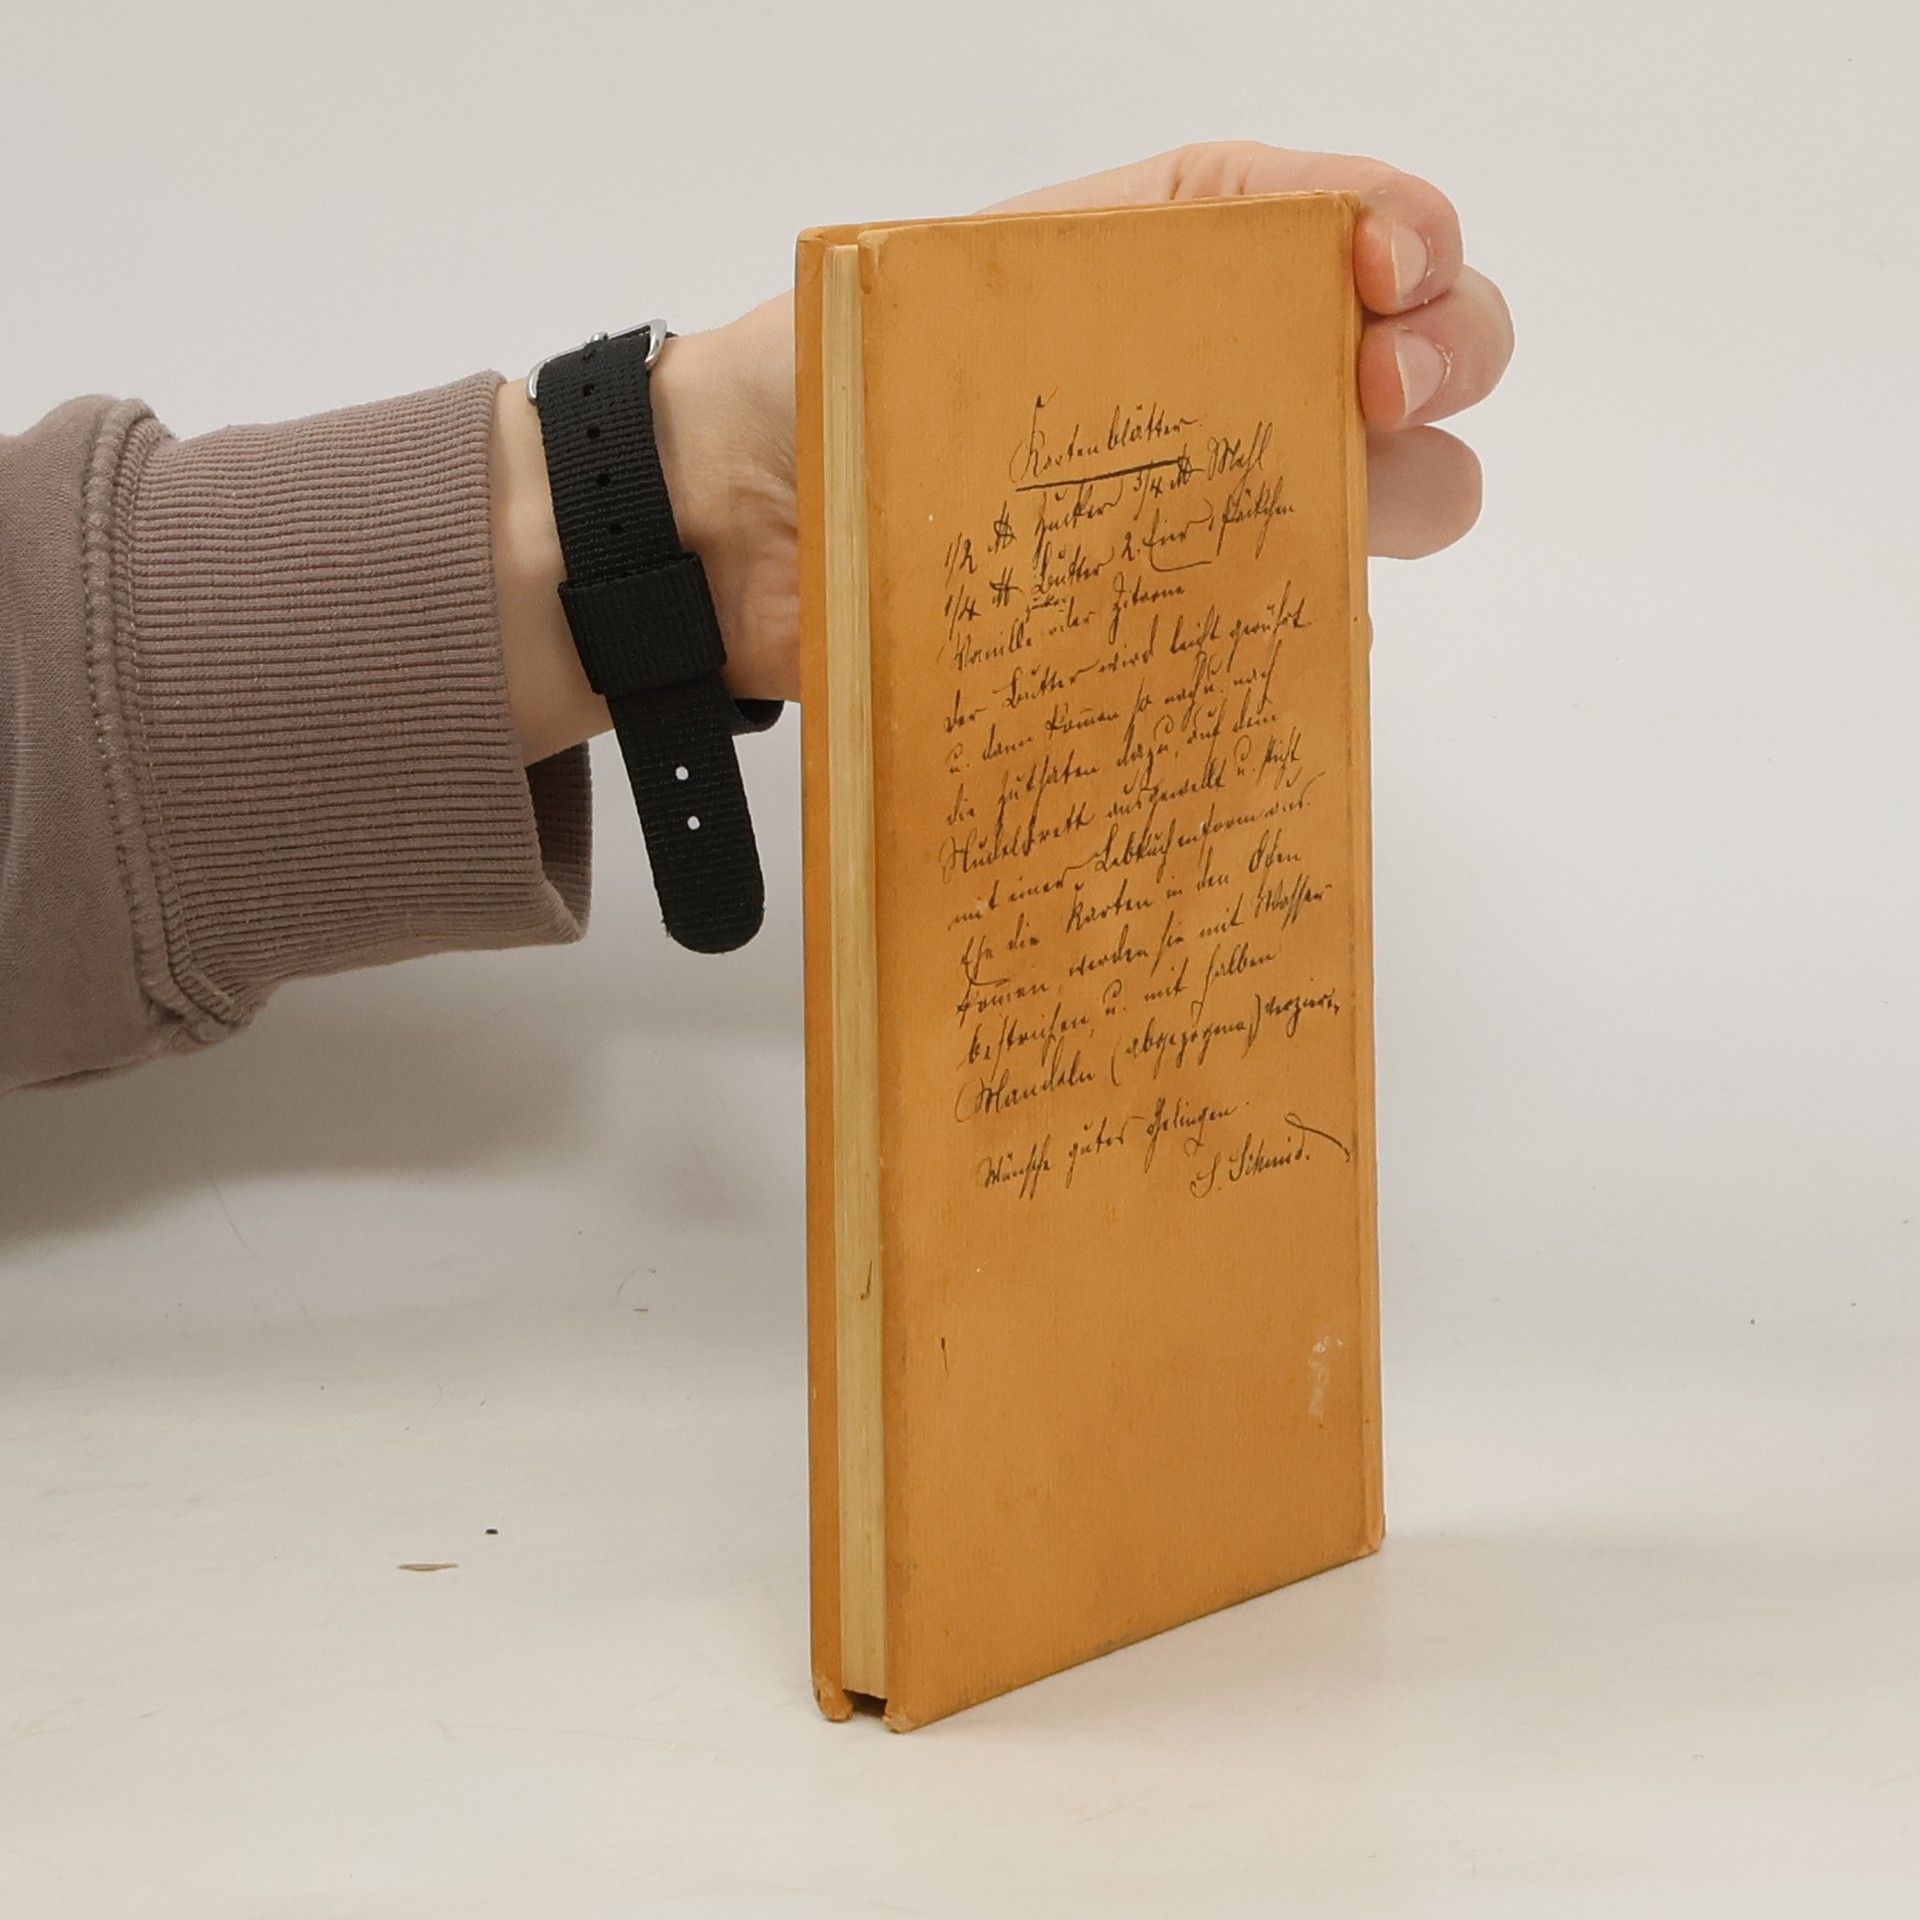 Kartenblätter.
1/2 ℔ Zucker 3/4 ℔ Mehl
1/4 ℔ Butter 2. Eier 1 Päckchen
Vanille zucker oder Zitrone
Der Butter wird leicht gerührt
u. dann kom̅en so nach u. nach
die Zuthaten dazu, auf dem
Nudelbrett ausgewellt u. sticht
mit einer Lebkuchenform aus.
Ehe die Karten in den Ofen
kom̅en, werden sie mit Wasser
bestrichen, u. mit halben
Mandeln (abgezogene) verziert.
Wünsche gutes Gelingen.
S. Schmid.